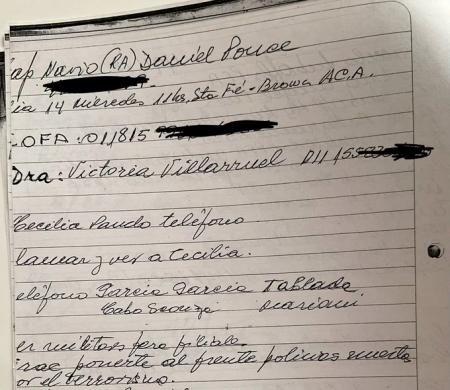 ap Navio (RA) Daniel Ponce
ia 14 miercoles 11hs, Sta Fé - Brown A.C.A.
OFA: 011815
Dra: Victoria Villarruel 011 155
Cecilia Pando teléfono
lamar y ver a Cecilia.
eléfono Garcia Garcia Tablada
Cabo mariani
er militar
ponerte al frente policias muerto
or el terrorismo.